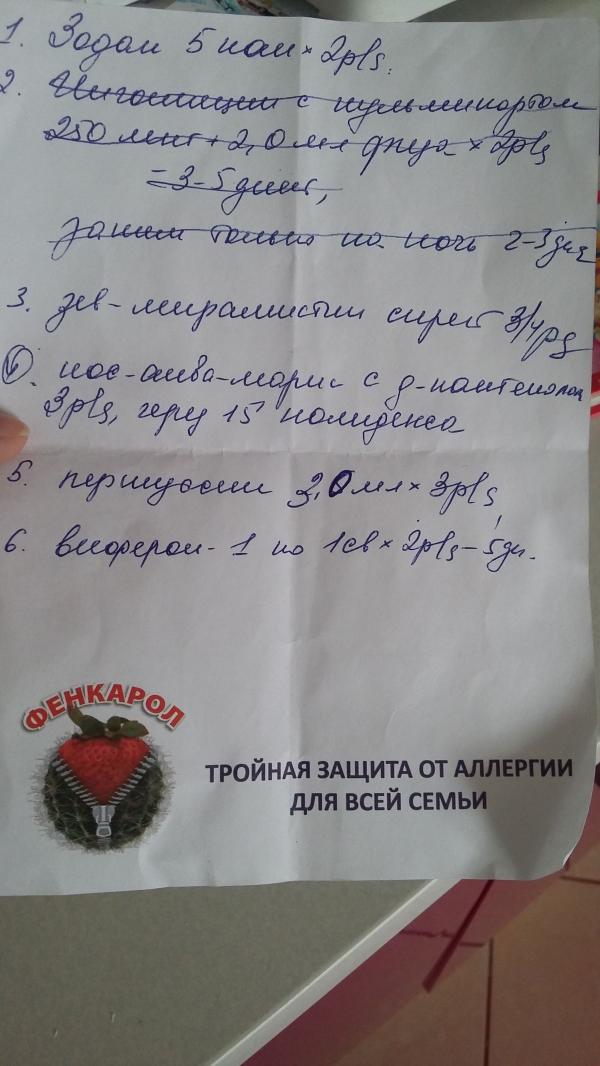 1. Зодак 5 кап × 2р/д.
2. Ингаляции с пульмикортом
250 мкг + 2,0 мл физ × 2р/д
= 3-5 дней,
затем только на ночь 2-3 дня
3. зев-мирамистин спрей 3/4 рд
4. нос-аква-марис с д-пантенолом
3р/д, через 15' полидекса
5. перtуссин 3,0 мл × 3р/д
6. виферон-1 по 1св × 2р/д - 5дн.
ФЕНКАРОЛ
ТРОЙНАЯ ЗАЩИТА ОТ АЛЛЕРГИИ
ДЛЯ ВСЕЙ СЕМЬИ